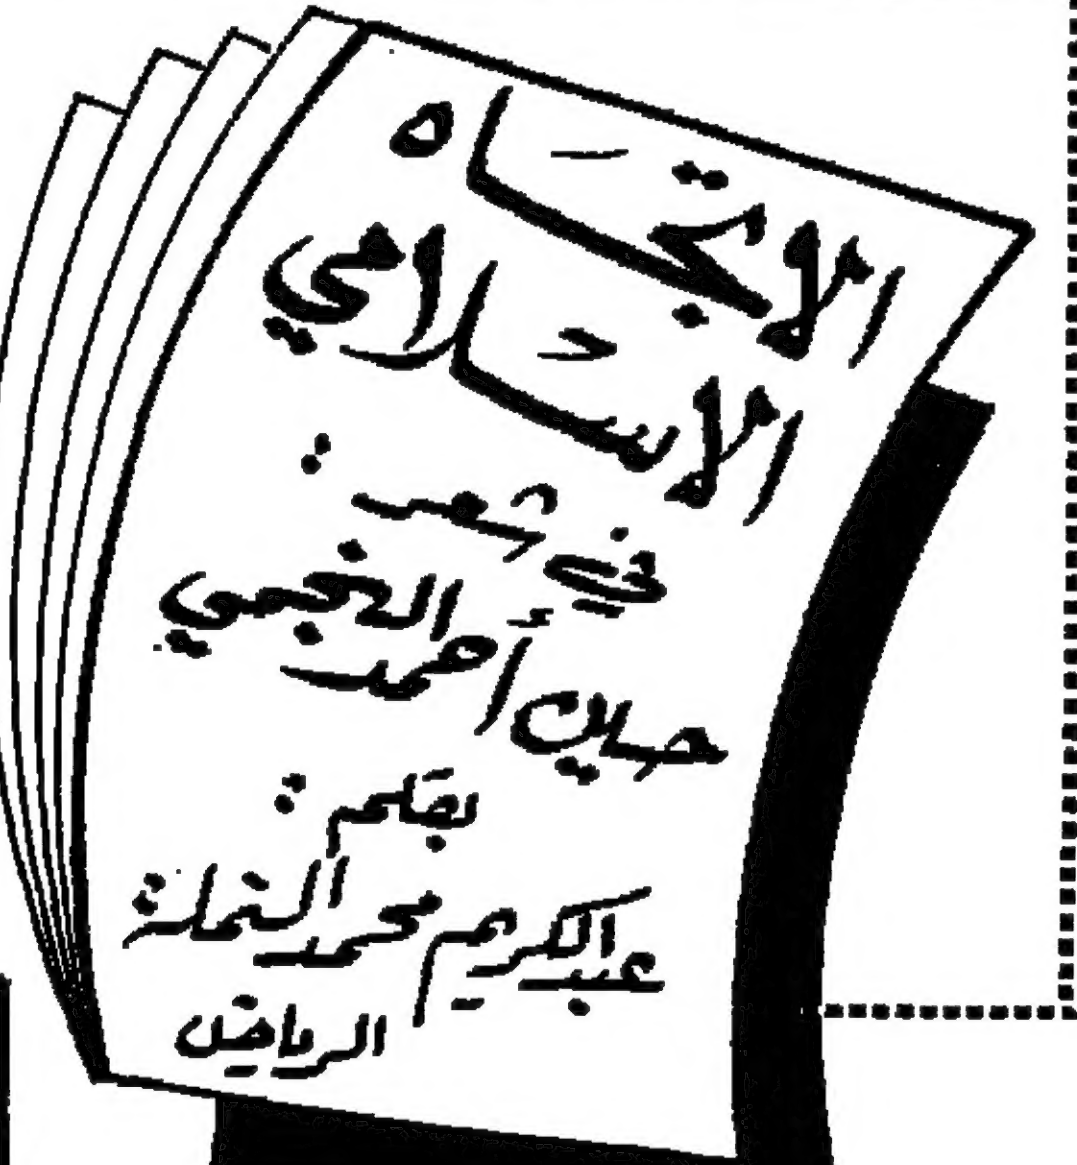 الاتجَاه
الاسلامي
في شعر :
حسين أحمد النجمي
بقلم :
عبد الكريم محمد النملة
الرياض